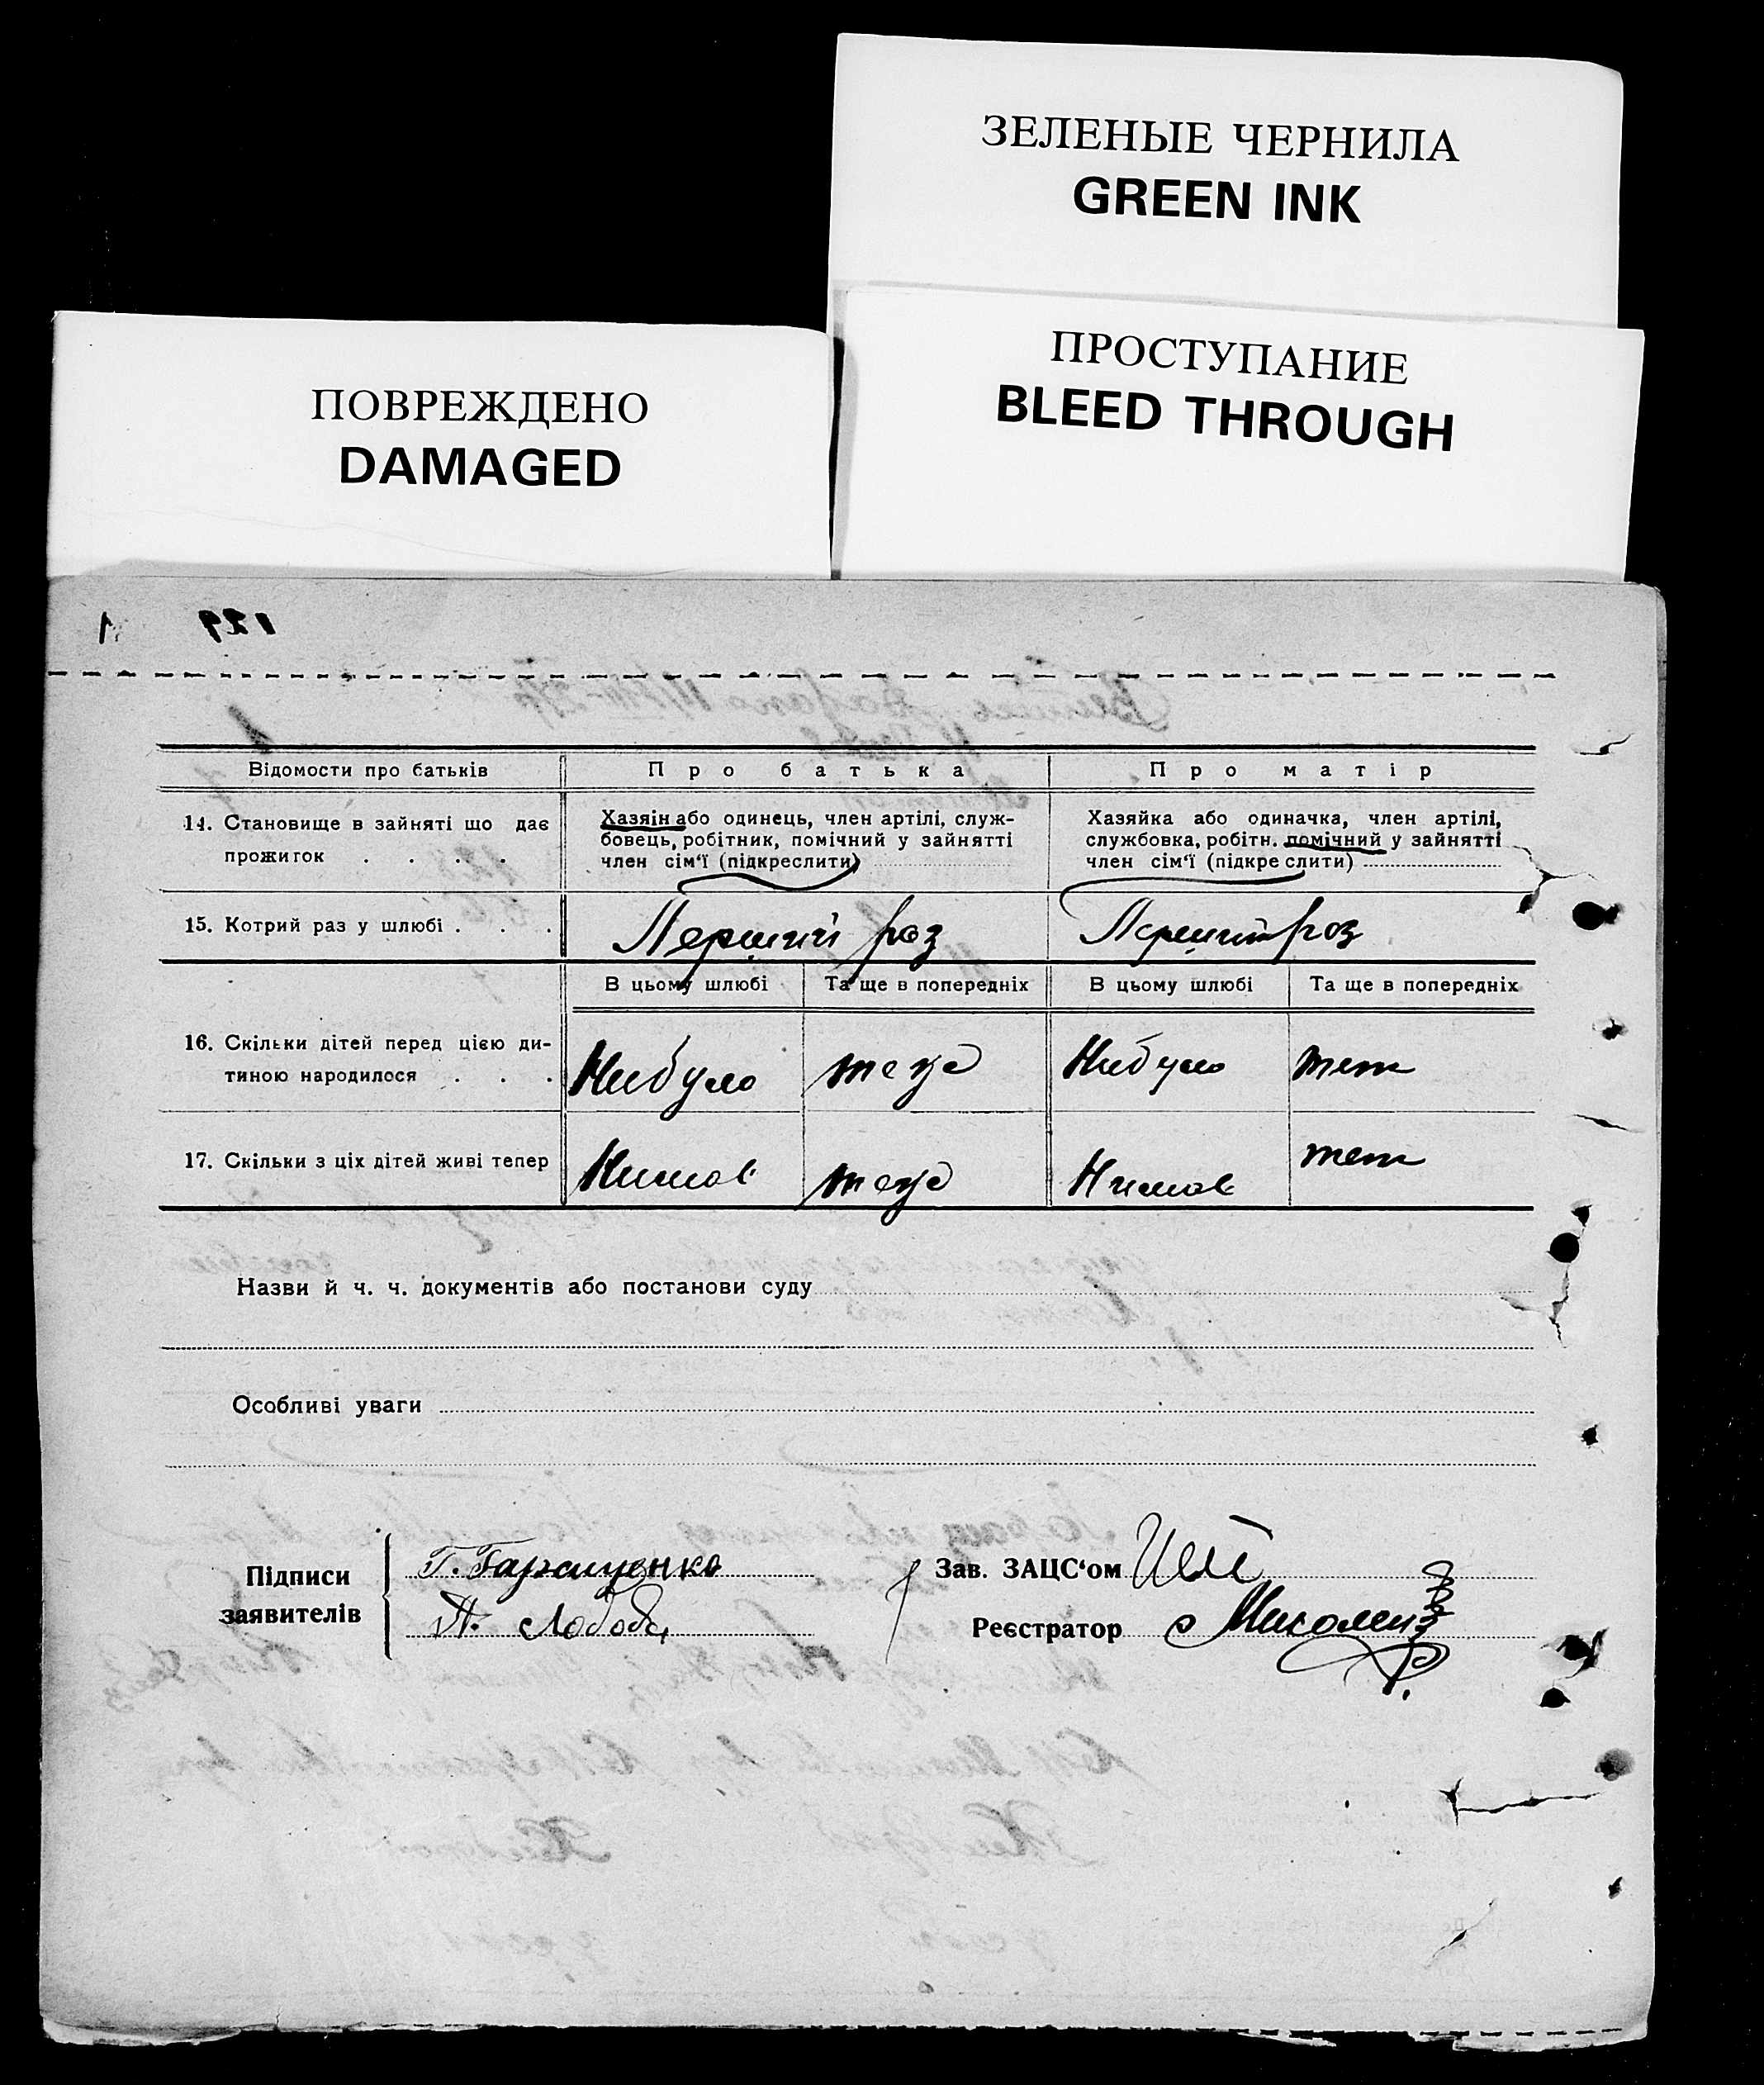 ЗЕЛЕНЫЕ ЧЕРНИЛА
GREEN INK
ПРОСТУПАНИЕ
BLEED THROUGH
ПОВРЕЖДЕНО
DAMAGED
129
Відомости про батьків
Про батька
Про матір
14. Становище в зайняті що дає
прожиток . . . .
Хазяїн або одинець, член артілі, служ-
бовець, робітник, помічний у зайнятті
член сім‘ї (підкреслити)
Хазяйка або одиначка, член артілі,
службовка, робітн. помічний у зайнятті
член сім‘ї (підкреслити)
15. Котрий раз у шлюбі . . .
Перший раз
Перший раз
В цьому шлюбі
Та ще в попередніх
В цьому шлюбі
Та ще в попередніх
16. Скільки дітей перед цією ди-
тиною народилося . . .
Нибуло
Нибуло
17. Скільки з ціх дітей живі тепер
Нимає
Нимає
Назви й ч. ч. документів або постанови суду
Особливі уваги
Підписи
заявителів
Т. Гаращенко
Лобода
Зав. ЗАЦС‘ом
Реєстратор